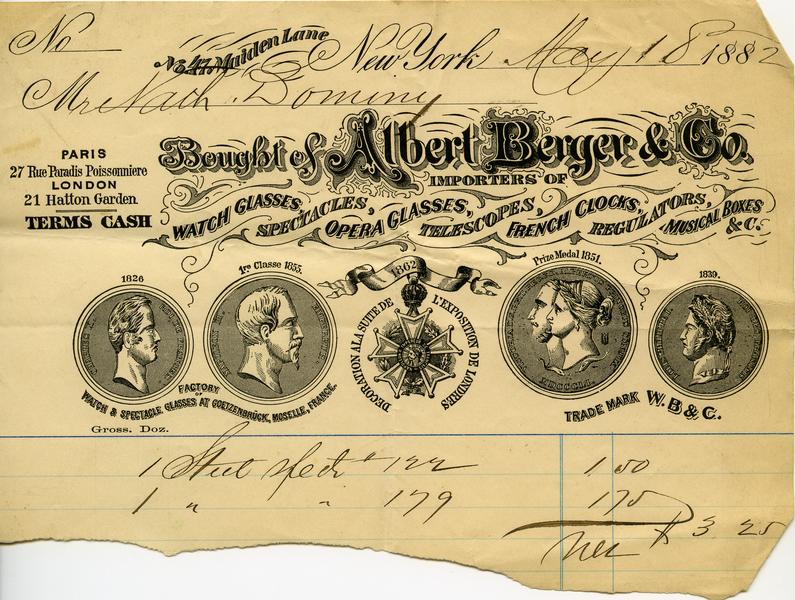 No
No 47 Maiden Lane New York May 18 1882
Mr Nath. Dominy
PARIS
27 Rue Paradis Poissonniere
LONDON
21 Hatton Garden.
TERMS CASH
Bought of Albert Berger & Co.
IMPORTERS OF
WATCH GLASSES, SPECTACLES, OPERA GLASSES, TELESCOPES, FRENCH CLOCKS, REGULATORS, MUSICAL BOXES &C.
1826
1re Classe 1855.
1862
Prize Medal 1851.
1839.
DECORATION A LA SUITE DE L'EXPOSITION DE LONDRES
MDCCCLI
FACTORY
OF
WATCH & SPECTACLE GLASSES AT GOETZENBRÜCK, MOSELLE, FRANCE.
TRADE MARK W. B & C.
Gross. Doz.
1 Steel Specs # 122 1 50
1 " " 179 1 75
Net $ 3 25